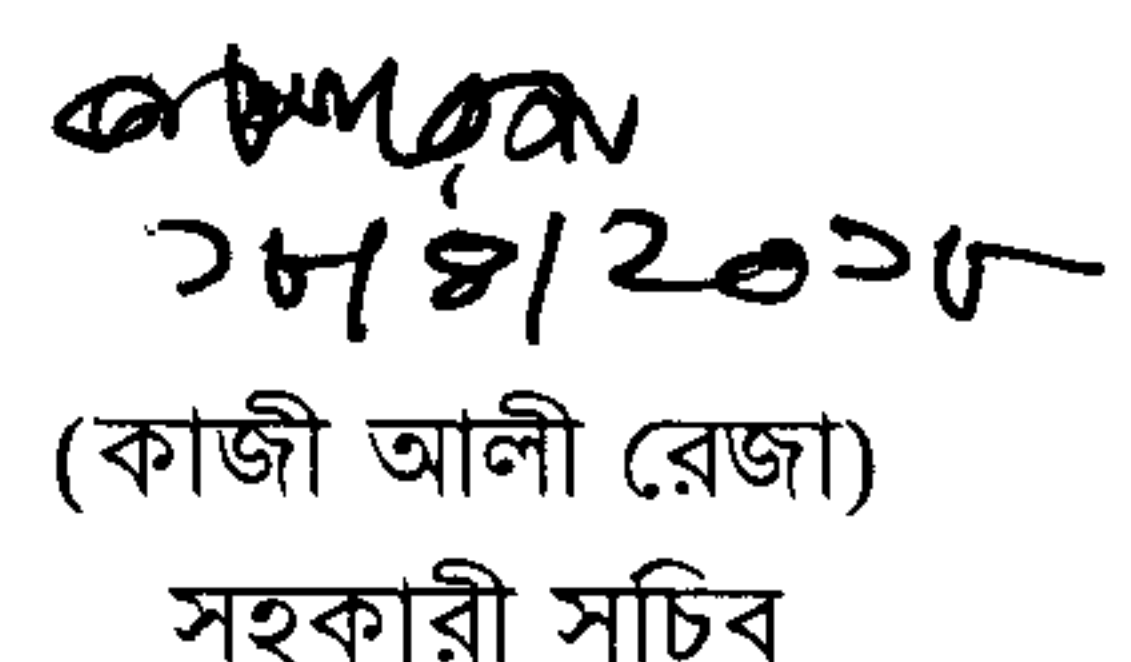 ১৮/৪/২০১৮
(কাজী আলী রেজা)
সহকারী সচিব